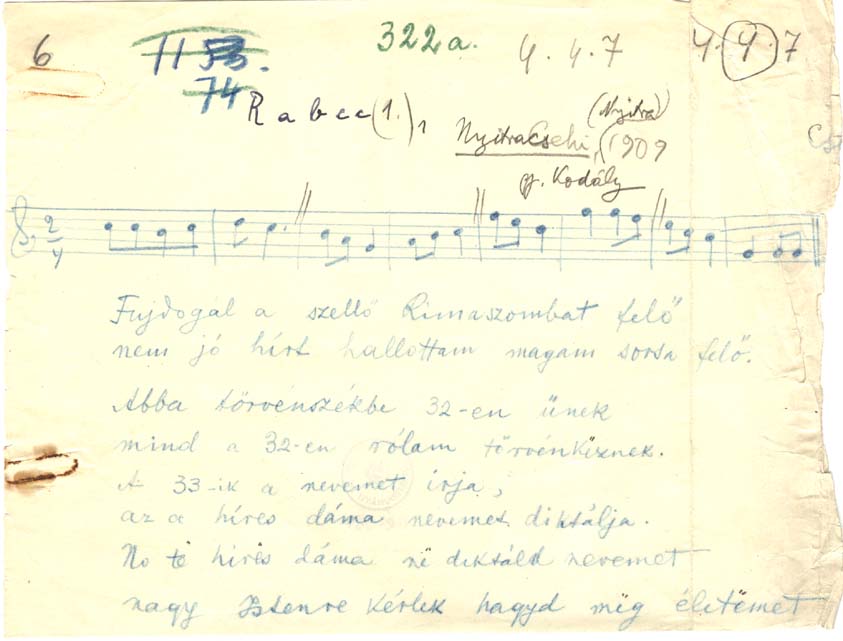 6 1153. 322a. 4.4.7 4.4.7
74
Rabec (1.),
Nyitracsehi, (Nyitra) 1909
gy. Kodály
2/4
Fujdogál a szellő Rimaszombat felő
nem jó hírt hallottam magam sorsa felő.
Abba törvénszékbe 32-en ünek
mind a 32-en rólam törvénkëznek.
A 33-ik a nevemet írja,
az a híres dáma nevemet diktálja.
No të híres dáma në diktáld nevemet
nagy Istenre kérlek hagyd mëg életëmet